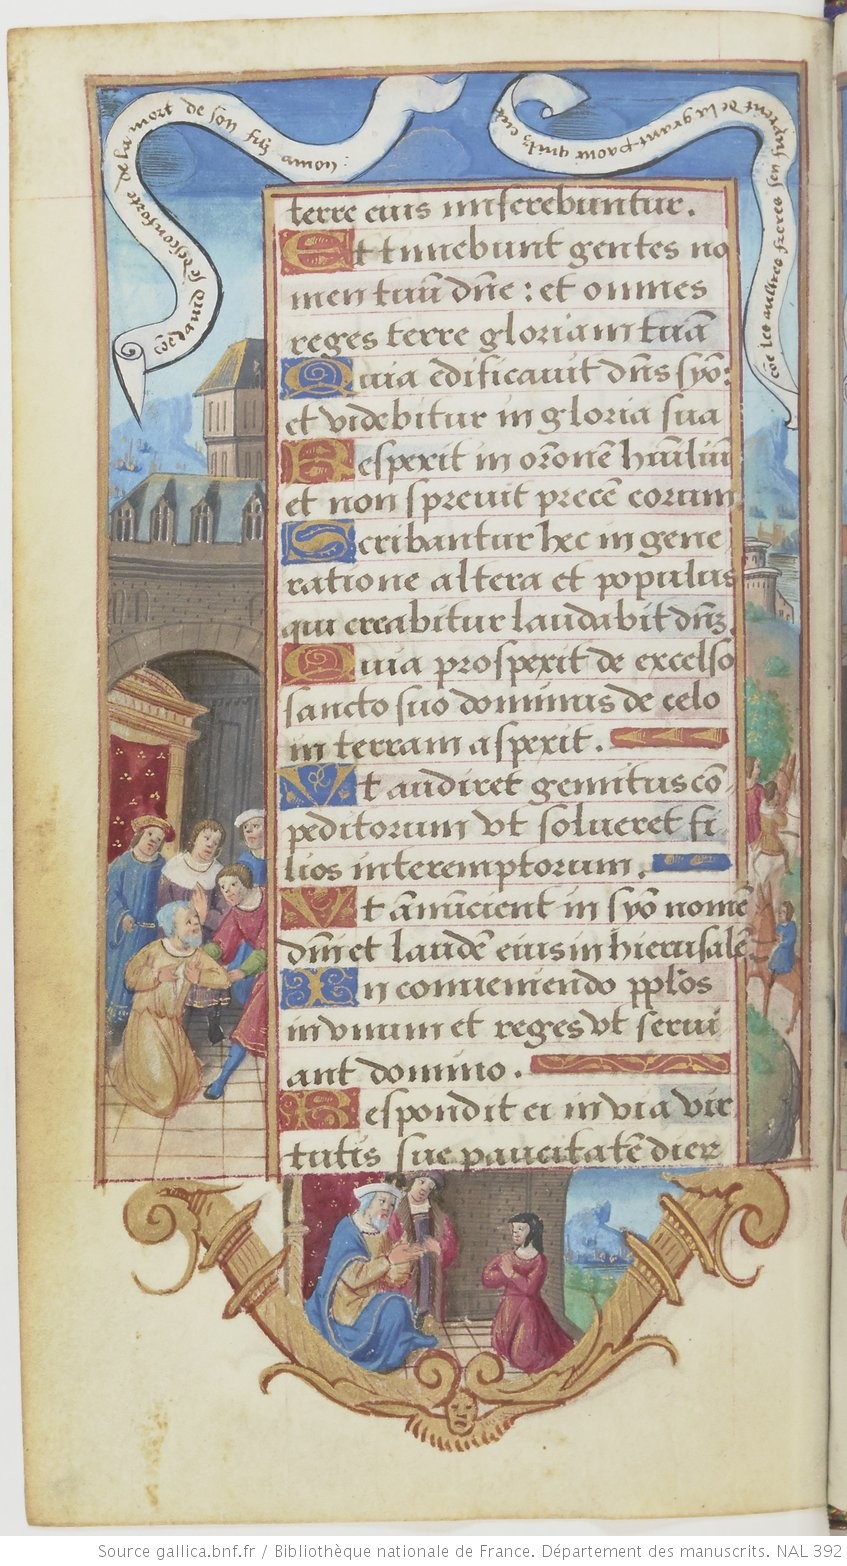 cõe david se desconforte de la mort de son filz amon
cõe les aultres freres sen fuirent de la grant paour quilz eut
terre eius miserebuntur.
Et timebunt gentes no
men tuũ dñe : et omnes
reges terre gloriam tuã
Quia edificauit dñs syõ:
et videbitur in gloria sua
Respexit in orõnẽ hũiliũ
et non spreuit precẽ eorum
Scribantur hec in gene
ratione altera et populus
qui creabitur laudabit dñz.
Quia prospexit de excelso
sancto suo dominus de celo
in terram aspexit.
Vt audiret gemitus cõ
peditorum vt solueret fi
lios interemptorum.
Vt ãnũcient in syõ nomẽ
dñi et laudẽ eius in hierusalẽ
In conueniendo pplõs
in vnum et reges vt serui
ant domino.
Respondit ei in via vir
tutis sue paucitatẽ dier
Source gallica.bnf.fr / Bibliothèque nationale de France. Département des manuscrits. NAL 392